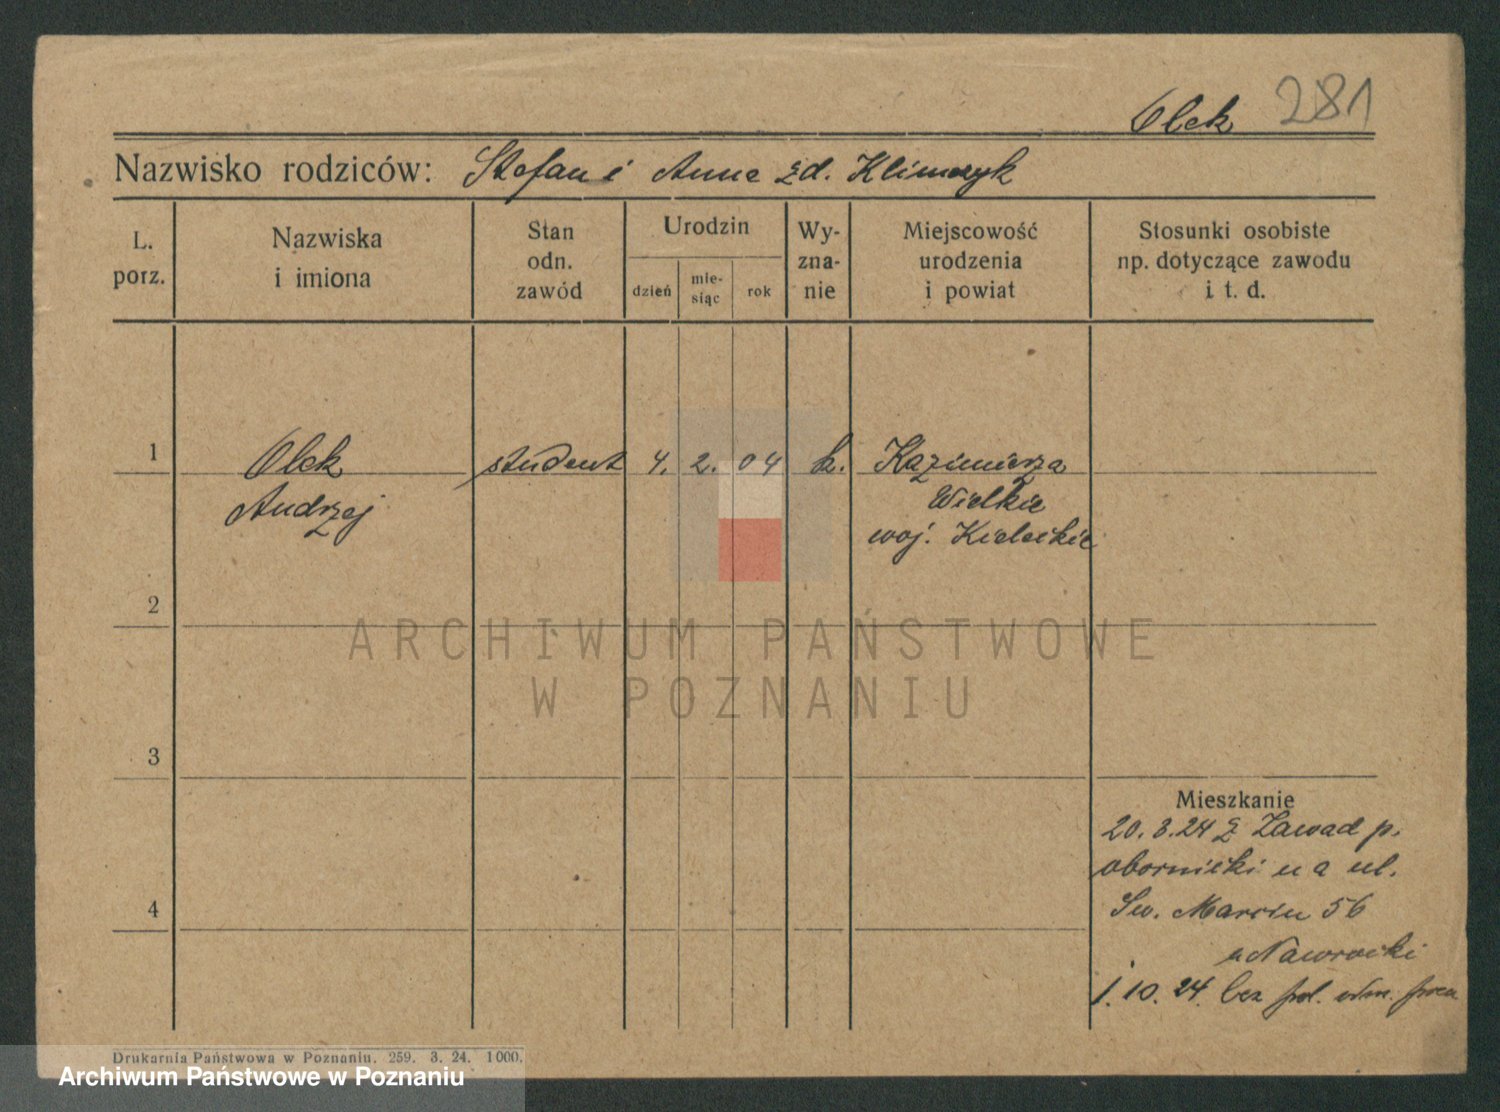 Olek 281
Nazwisko rodziców: Stefan i Anna zd. Klimczyk
L. porz.
Nazwiska i imiona
Stan odn. zawód
Urodzin
dzień
mie- siąc
rok
Wy- zna- nie
Miejscowość urodzenia i powiat
Stosunki osobiste np. dotyczące zawodu i t. d.
1 Olek student 4. 2. 04 k. Kazimierza
Andrzej Wielkie
woj. Kieleckie
2
ARCHIWUM PAŃSTWOWE
W POZNANIU
3
Mieszkanie
20.3.24 z Zawad p.
obornicki na ul.
4 Św. Marcin 56
u Nawrocki
1.10.24 bez pol.
Drukarnia Państwowa w Poznaniu. 259. 3. 24. 1000.
Archiwum Państwowe w Poznaniu